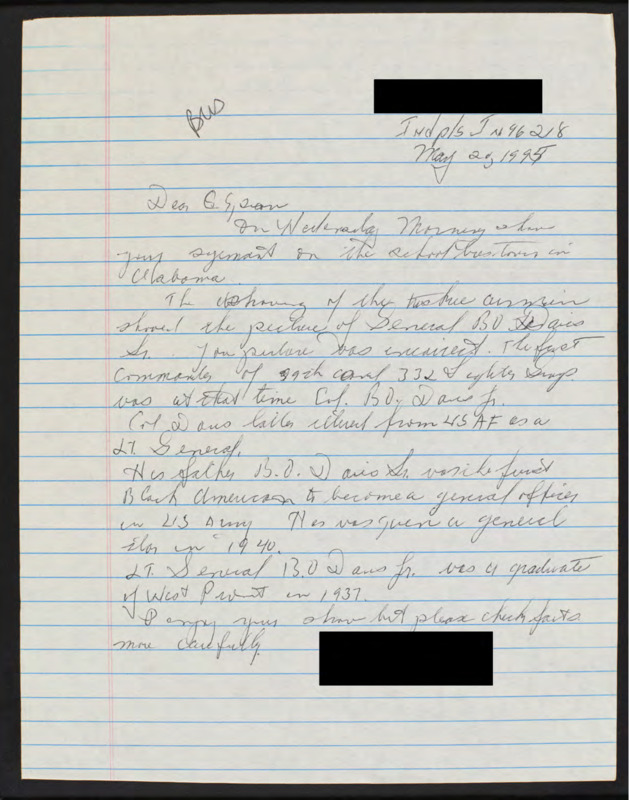 Bus
Indpls In 46218
May 29 1995
Dear
On Wednesday Morning show
your segment on the school bus tours in
Alabama.
The showing of the Tuskee airmen
showed the picture of General BO Davis
Sr. You picture was incorrect. The first
Commander of 99th and 332d Fighter
was at that time Col. B.O. Davis Jr.
Col Davis latter retired from US AF as a
LT. General.
His father B.O. Davis Sr. was the first
Black American to become a general officer
in US Army He was given a general
star in 1940.
LT. General B.O Davis Jr. was a graduate
of West Point in 1937.
I enjoy your show but please check facts
more carefully.